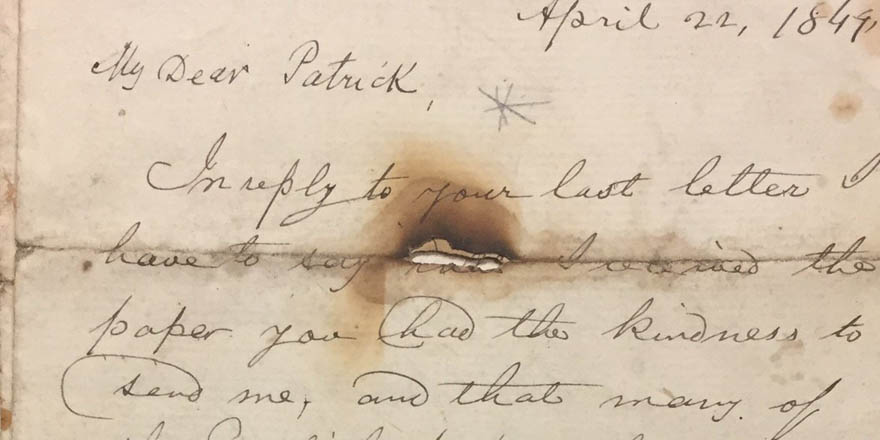 April 22, 1849,
My Dear Patrick,
In reply to your last letter I
have to say I received the
paper you had the kindness to
send me, and that many of
the